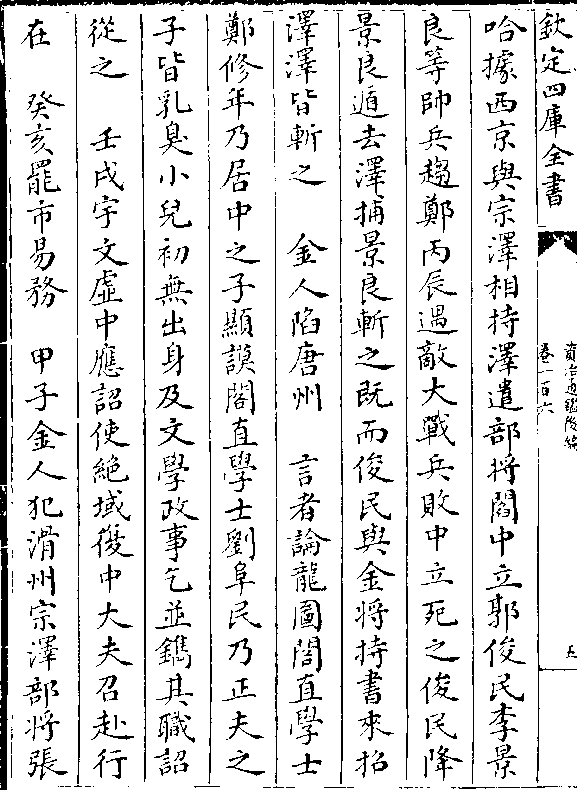 欽定四庫全書
資治通鑑後編
卷一百六
九
哈據西京與宗澤相持澤遣部將閻中立郭俊民李景
良等帥兵趨鄭丙辰遇敵大戰兵敗中立死之俊民降
景良遁去澤捕景良斬之既而俊民與金將持書來招
澤澤皆斬之　金人陷唐州　言者論龍圖閣直學士
鄭修年乃居中之子顯謨閣直學士劉阜民乃正夫之
子皆乳臭小兒初無出身及文學政事乞並鐫其職詔
從之　壬戌宇文虛中應詔使絶域復中大夫召赴行
在　癸亥罷市易務　甲子金人犯滑州宗澤部將張